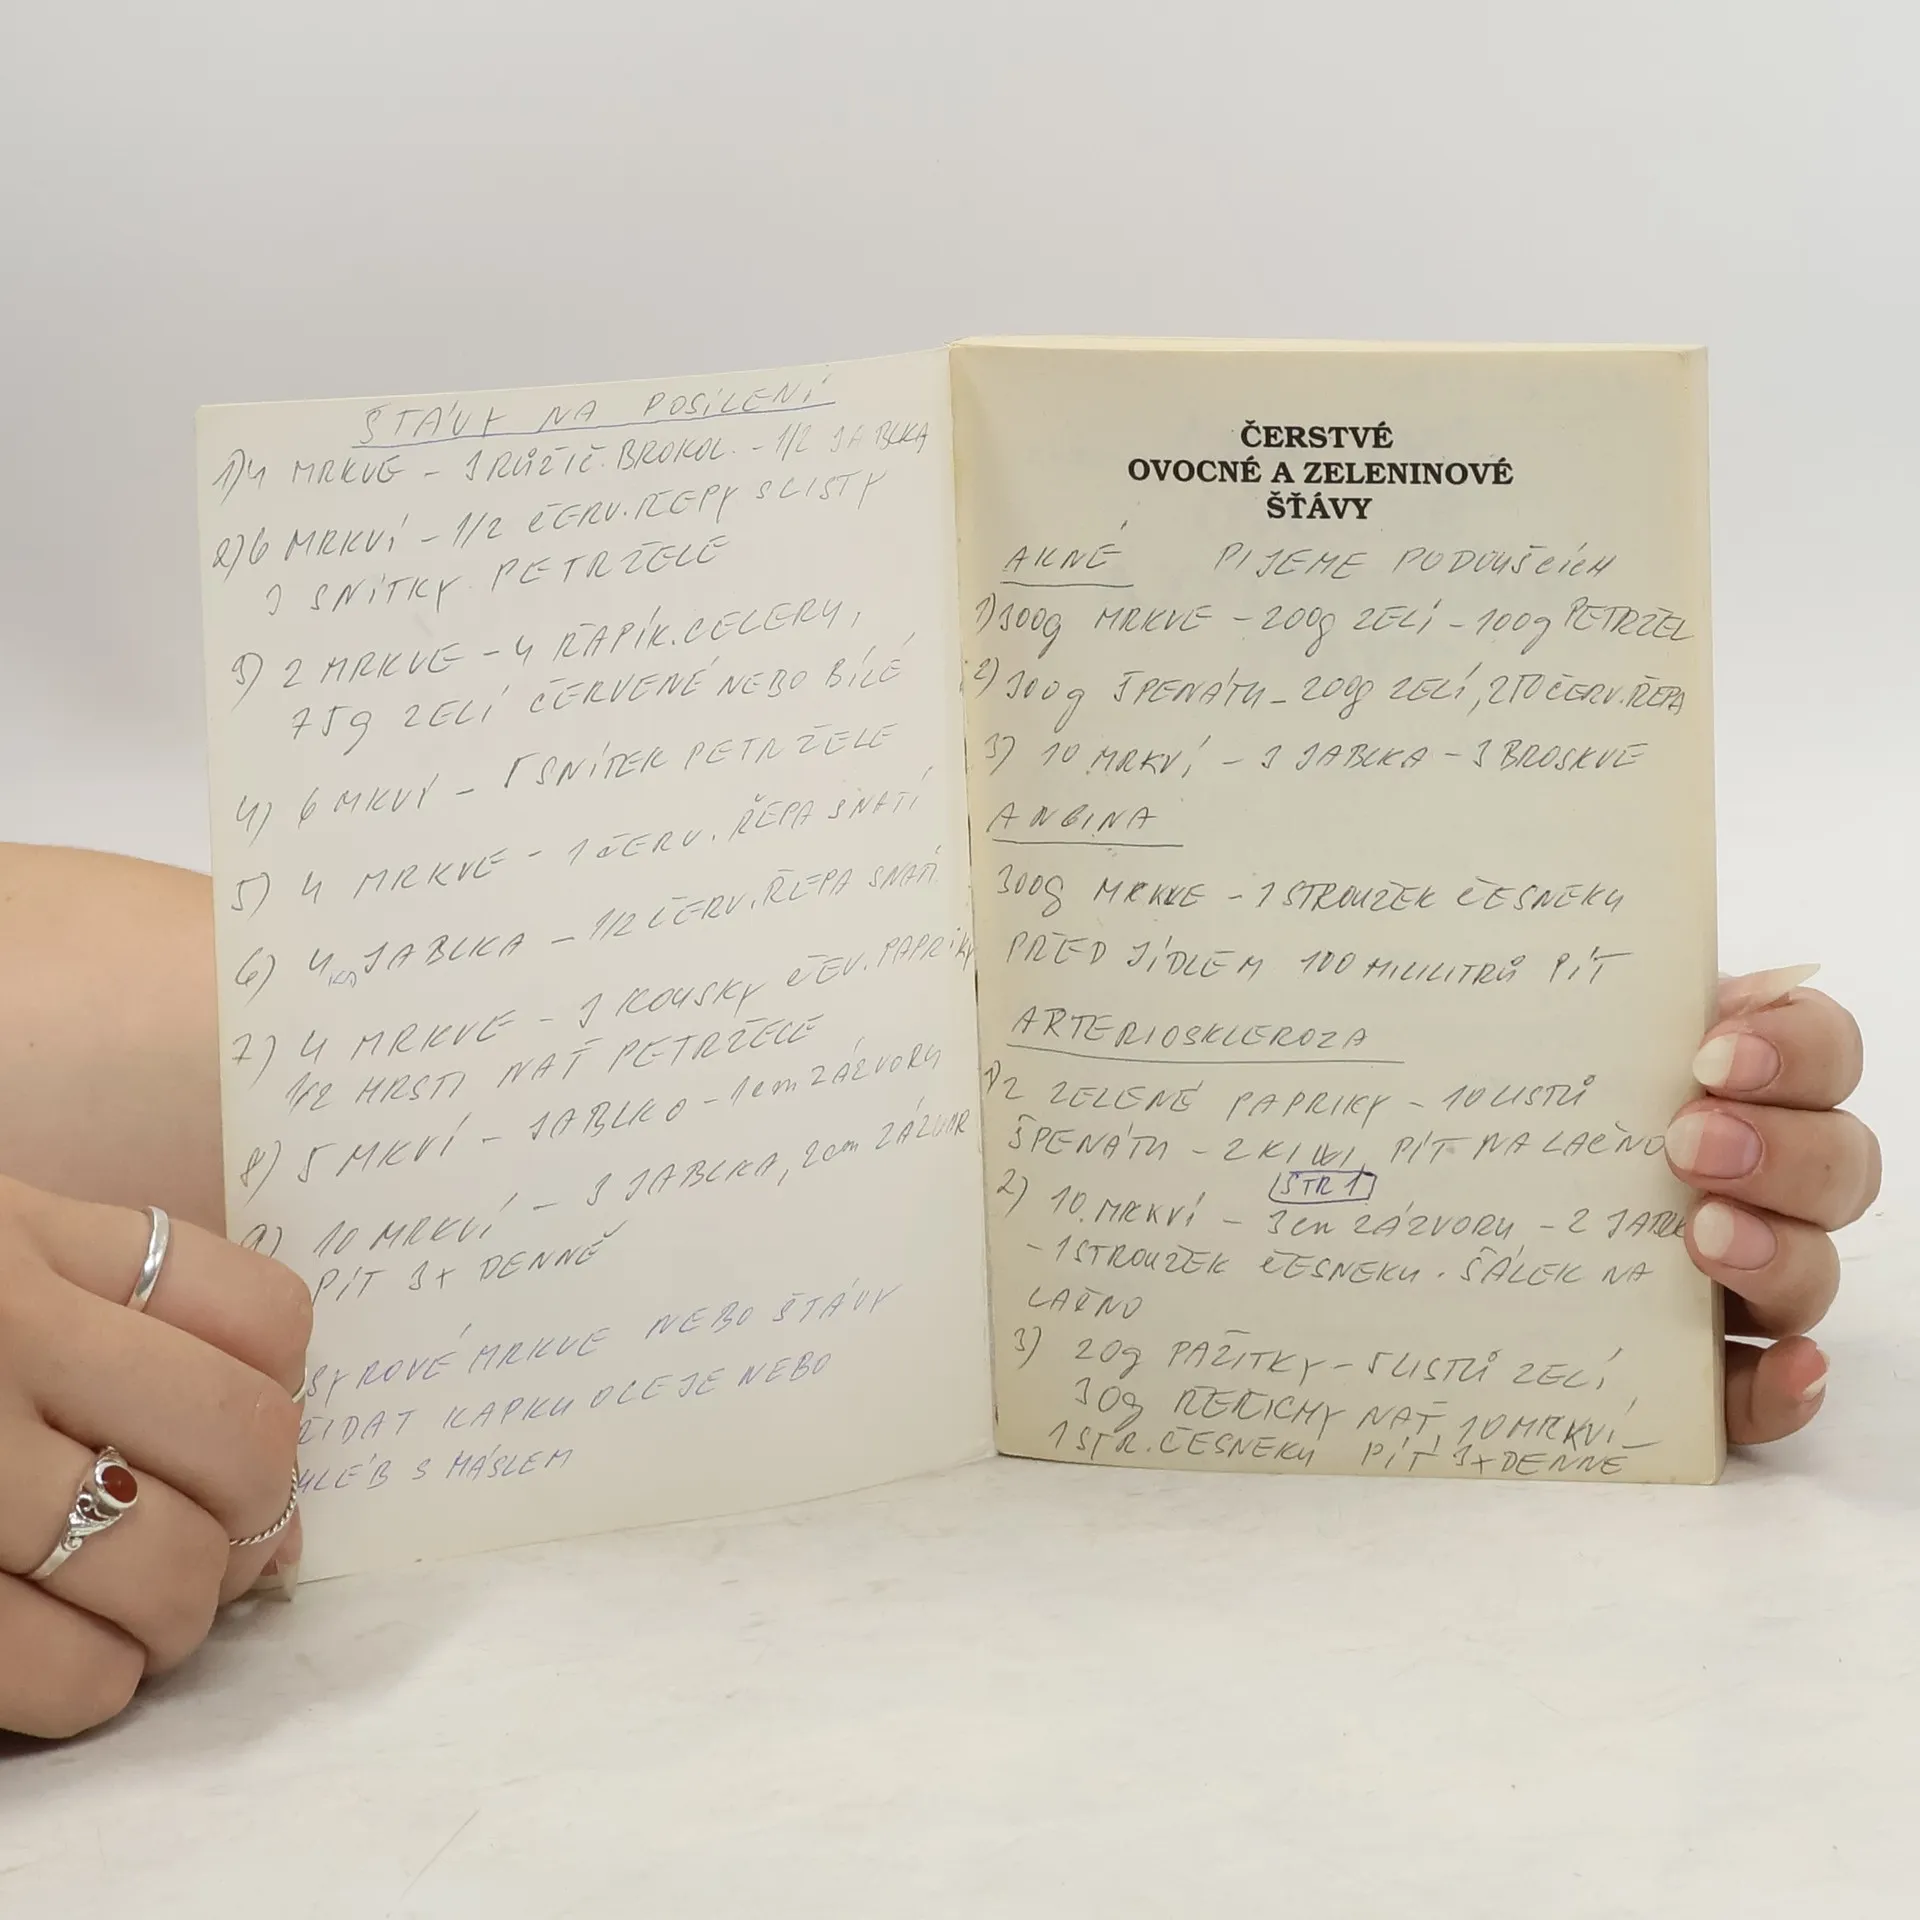 ŠTÁVY NA POSÍLENÍ
1) 4 MRKVE - 3 RŮŽIČ. BROKOL. - 1/2 JABLKA
2) 6 MRKVÍ - 1/2 ČERV. ŘEPY S LISTY
3 SNÍTKY PETRŽELE
3) 2 MRKVE - 4 ŘAPÍK. CELERU,
75g ZELÍ ČERVENÉ NEBO BÍLÉ
4) 6 MKVÍ - 5 SNÍTEK PETRŽELE
5) 4 MRKVE - 1 ČERV. ŘEPA S NATÍ
6) 4 JABLKA - 1/2 ČERV. ŘEPA S NATÍ
7) 4 MRKVE - 3 KOUSKY ČEV. PAPRIKY
1/2 HRSTI NAŤ PETRŽELE
8) 5 MKVÍ - JABLKO - 1cm ZÁZVORU
9) 10 MRKVÍ - 3 JABLKA, 2cm ZÁZVOR
PÍT 3x DENNĚ
SYROVÉ MRKVE NEBO ŠTÁVY
KAPKU OLEJE NEBO
S MÁSLEM
ČERSTVÉ
OVOCNÉ A ZELENINOVÉ
ŠŤÁVY
AKNÉ PIJEME PO DOUŠCÍCH
1) 300g MRKVE - 200g ZELÍ - 100g PETRŽEL
2) 300g ŠPENÁTU - 200g ZELÍ, 250 ČERV. ŘEPA
3) 10 MRKVÍ - 3 JABLKA - 3 BROSKVE
ANGINA
300g MRKVE - 1 STROUŽEK ČESNEKU
PŘED JÍDLEM 100 MILILITRŮ PÍT
ARTERIOSKLEROZA
1) 2 ZELENÉ PAPRIKY - 10 LISTŮ
ŠPENÁTU - 2 KIWI, PÍT NA LAČNO
STR 1
2) 10 MRKVÍ - 3cm ZÁZVORU - 2 JABLK
- 1 STROUŽEK ČESNEKU. ŠÁLEK NA
LAČNO
3) 20g PAŽITKY - 5 LISTŮ ZELÍ,
30g ŘEŘICHY NAŤ, 10 MRKVÍ -
1 STR. ČESNEKU PÍT 3x DENNĚ